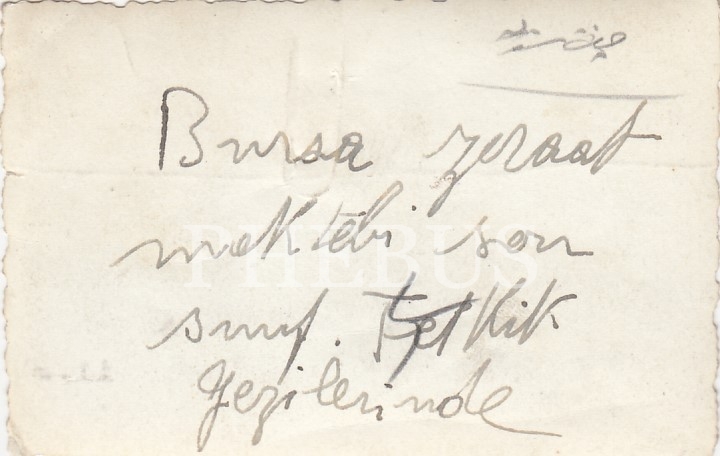 Bursa zeraat
mektebi son
sınıf. Tetkik
gezilerinde
PHEBUS